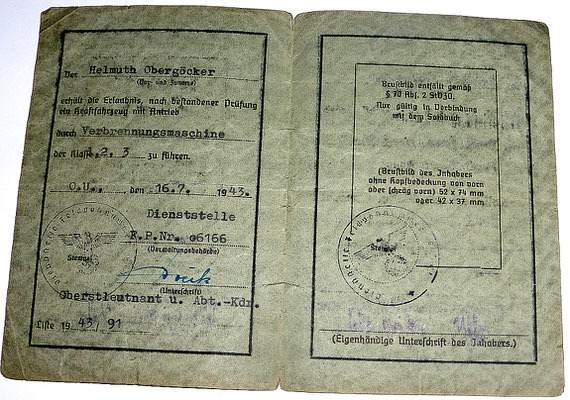 Der Helmuth Obergöcker
(Vor- und Zuname)
erhält die Erlaubnis, nach bestandener Prüfung
ein Kraftfahrzeug mit Antrieb
durch Verbrennungsmaschine
der Klasse 1. 2. 3 zu führen.
O.U., den 16.7. 1943.
Dienststelle
F.P.Nr. 06166
(Verwaltungsbehörde)
Stempel
(Unterschrift)
Oberstleutnant u. Abt.-Kdr.
Liste 1943/ 91
Brustbild entfällt gemäß
§ 70 Abs. 2 StVZO.
Nur gültig in Verbindung
mit dem Soldbuch
(Brustbild des Inhabers
ohne Kopfbedeckung von vorn
oder schräg vorn) 52 x 74 mm
oder 42 x 37 mm
Stempel
(Eigenhändige Unterschrift des Inhabers.)